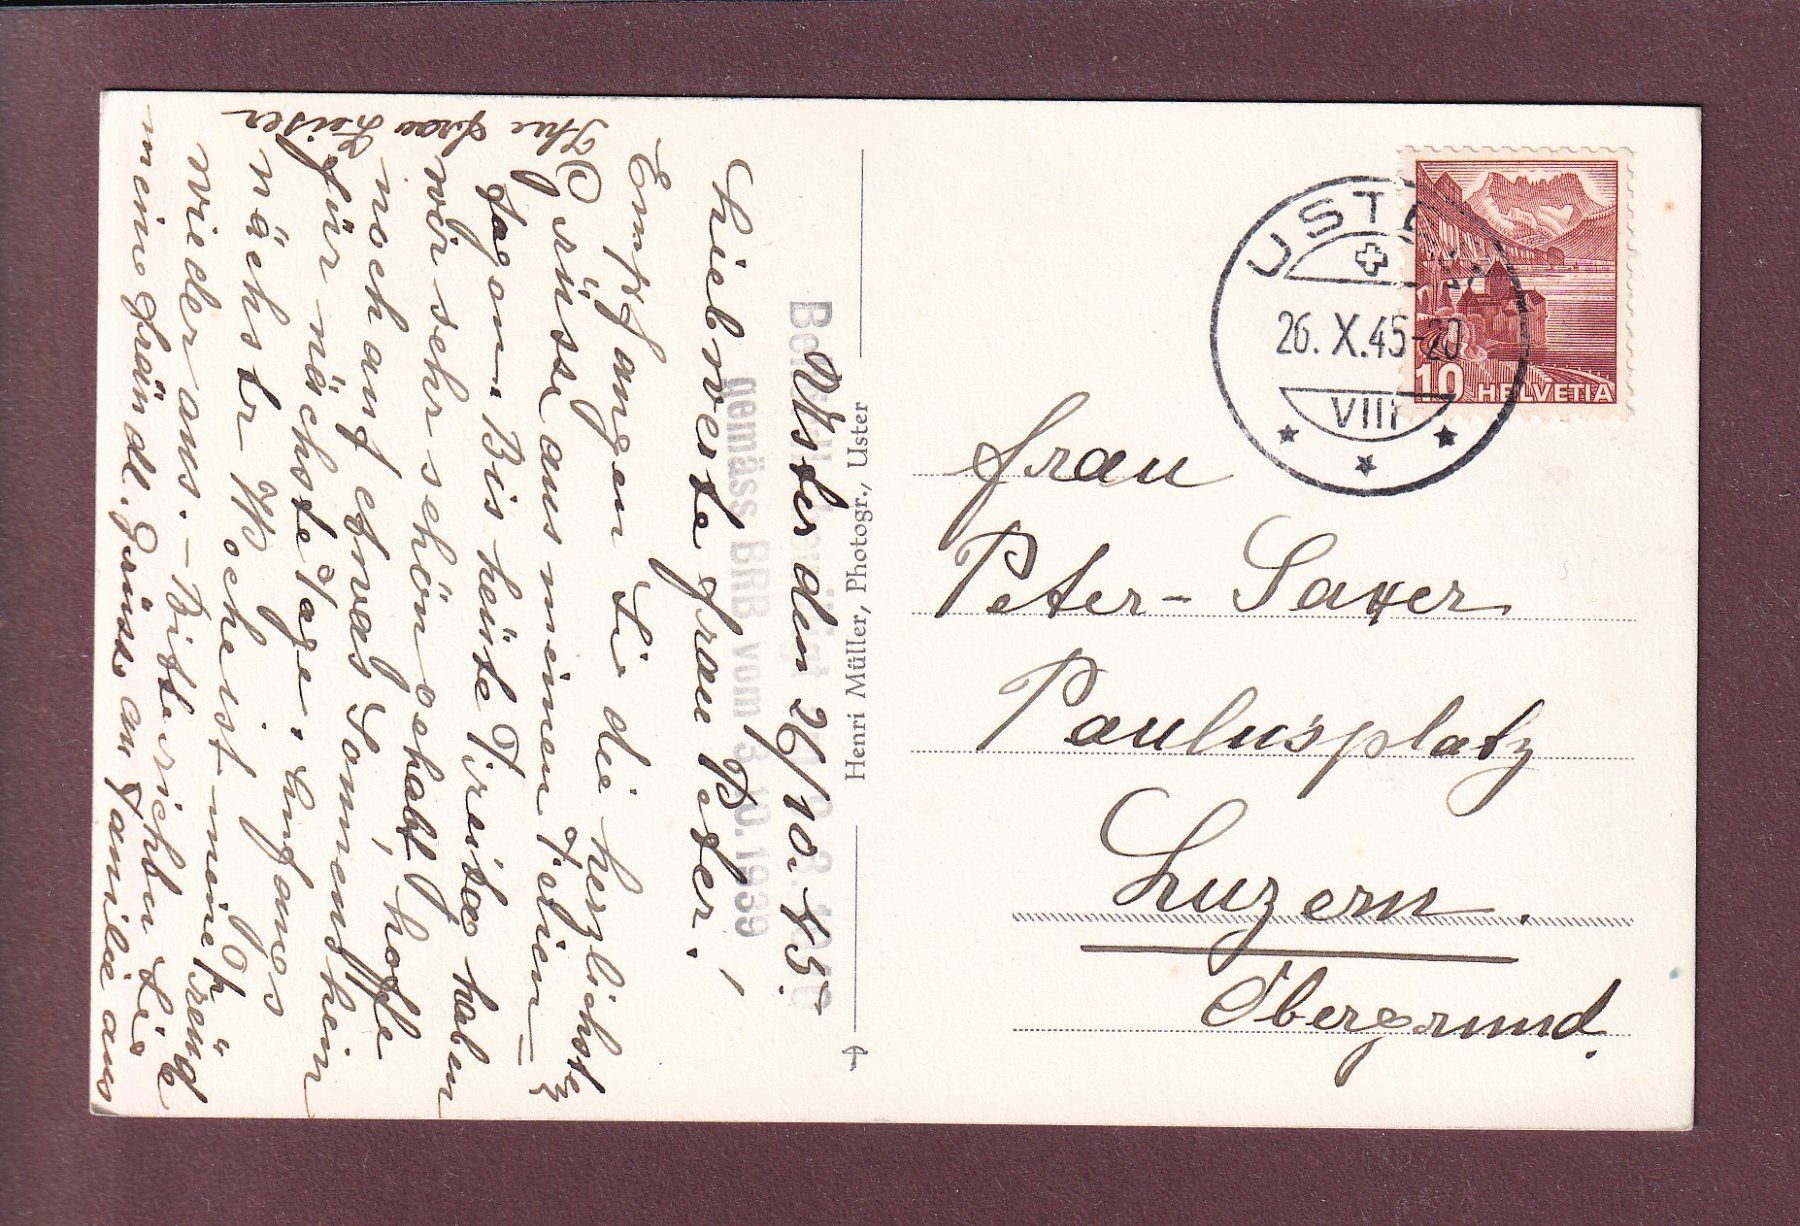 Uster den 26/10.45.
Liebwerte Frau Peter!
Empfangen Sie die herzlichsten
Grüsse aus meinen Ferien-
tagen. Bis heute Freitag haben
wir sehr schön gehabt, hoffe
noch auf etwas Sonnenschein
für nächste Tage. Anfangs
nächster Woche ist meine Freude
wieder aus. – Bitte richten Sie
meine freundl. Grüsse an Familie aus
Ihre Frau
Behördlich bewilligt
gemäss BRB vom 3. 10. 1939
Henri Müller, Photogr., Uster
USTER
26. X. 45-20
VIII
10 HELVETIA
Frau
Peter- Saxer
Paulusplatz
Luzern.
Obergrund.